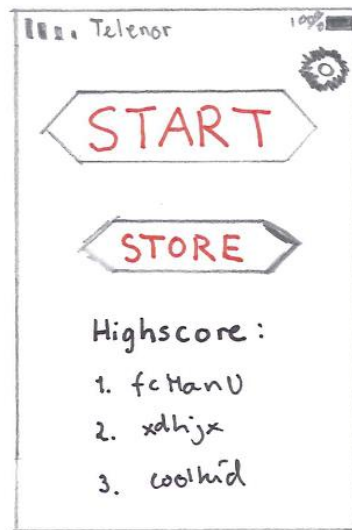 Telenor 100%
START
STORE
Highscore:
1. fcManU
2. xdhjx
3. coolkid